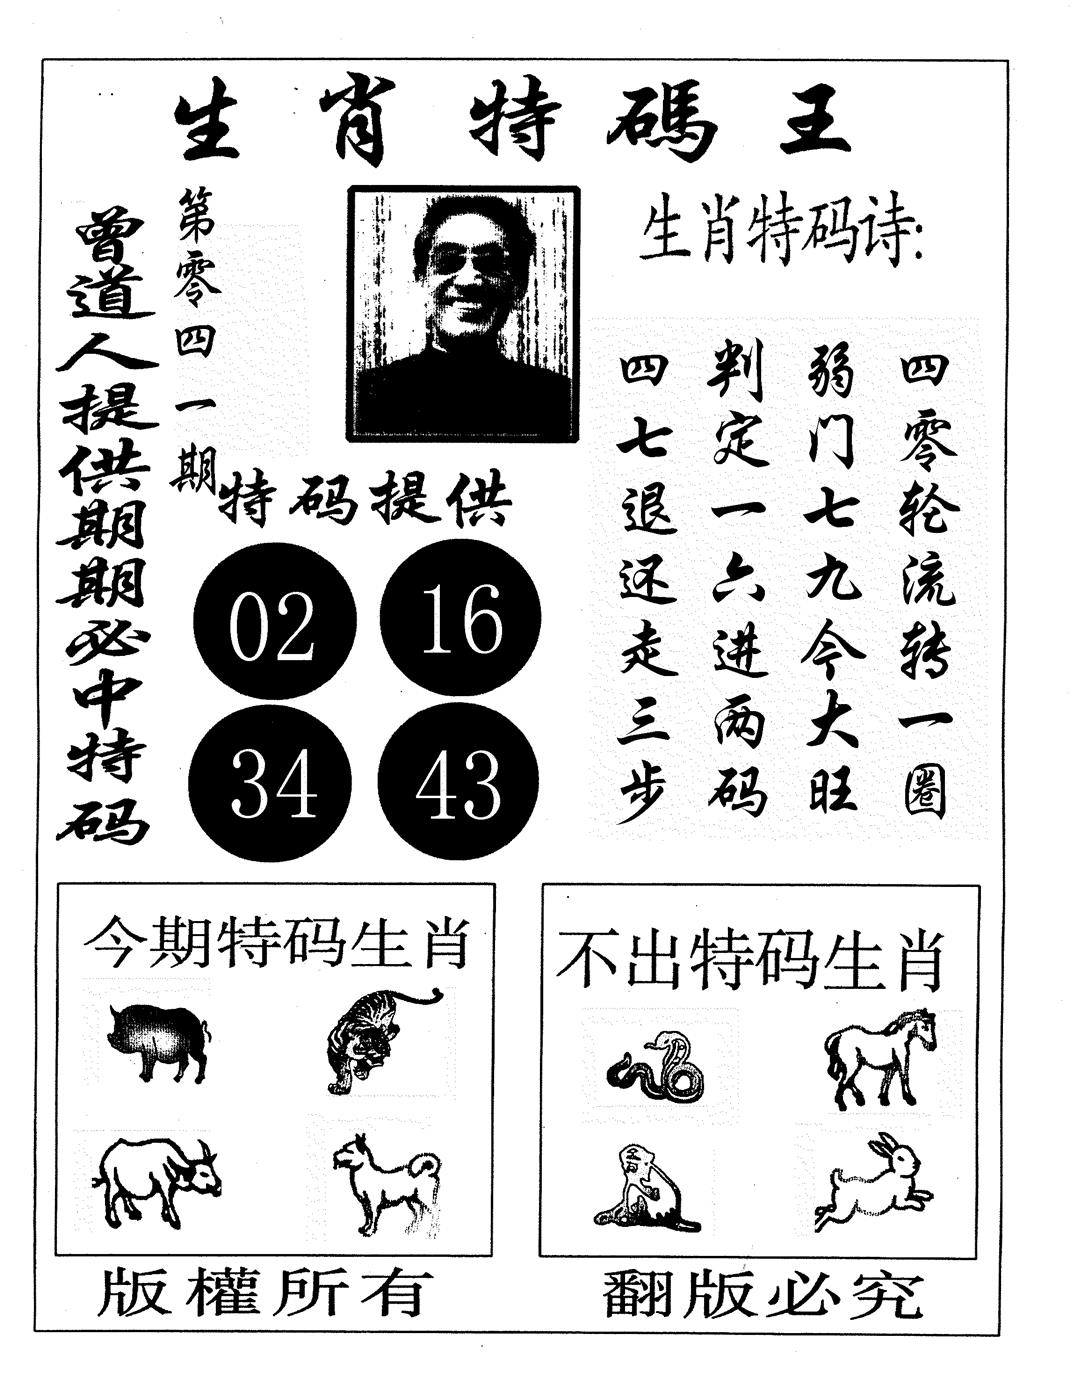 生肖特碼王
曾道人提供期期必中特码
第零四一期
生肖特码诗:
四零轮流转一圈
弱门七九今大旺
判定一六进两码
四七退还走三步
特码提供
02 16
34 43
今期特码生肖
不出特码生肖
版權所有
翻版必究